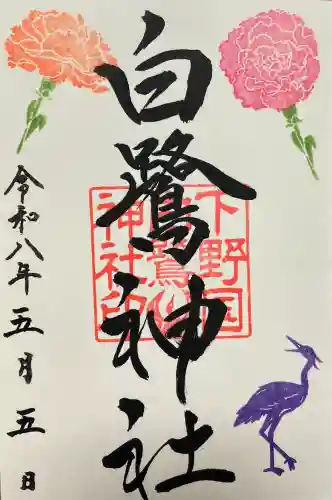 白鷺神社
下野国
白鷺山
神社印
令和八年五月五日